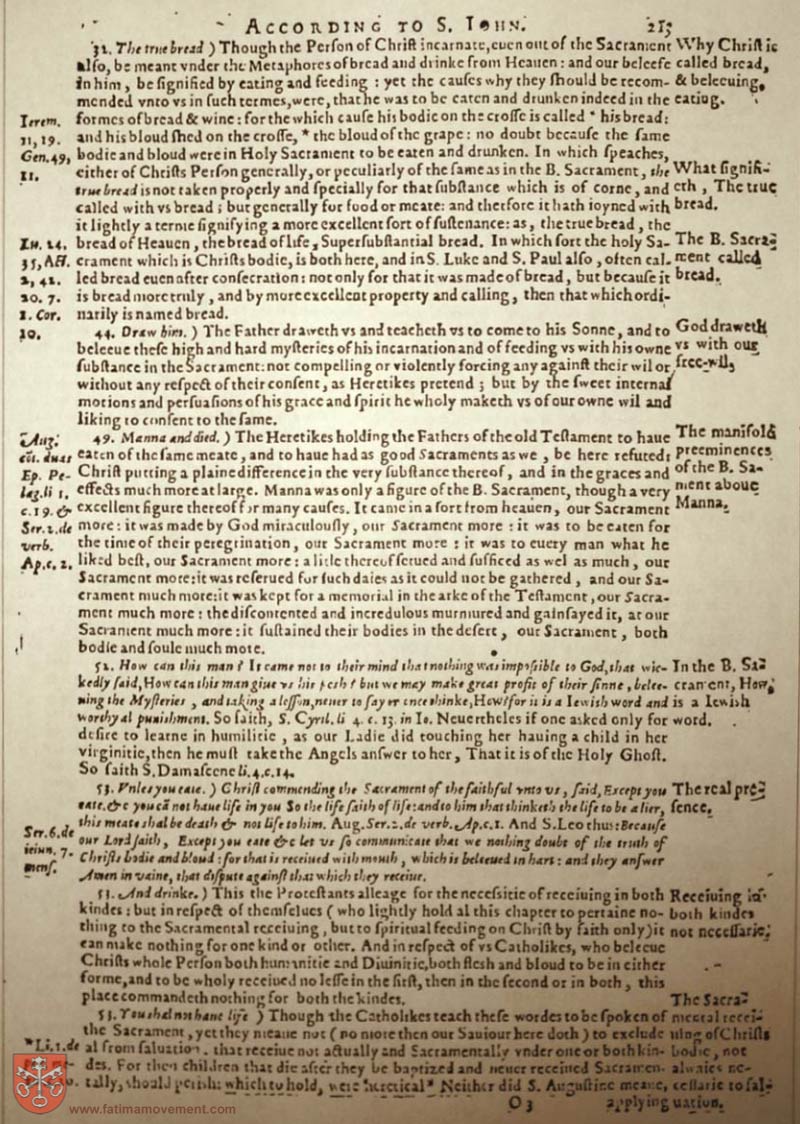 ACCORDING TO S. IOHN. 215
32. The true bread ) Though the Perſon of Chriſt incarnate, euen out of the Sacrament
alſo, be meant vnder the Metaphores of bread and drinke from Heauen: and our beleefe
in him, be ſignified by eating and feeding : yet the cauſes why they ſhould be recom-
mended vnto vs in ſuch termes, were, that he was to be eaten and drunken indeed in the
formes of bread & wine: for the which cauſe his bodie on the croſſe is called * his bread:
and his bloud ſhed on the croſſe, * the bloud of the grape: no doubt becauſe the ſame
bodie and bloud were in Holy Sacrament to be eaten and drunken. In which ſpeaches,
either of Chriſts Perſon generally, or peculiarly of the ſame as in the B. Sacrament, the
true bread is not taken properly and ſpecially for that ſubſtance which is of corne, and
called with vs bread ; but generally for food or meate: and therfore it hath ioyned with
it lightly a terme ſignifying a more excellent ſort of ſuſtenance: as, the true bread, the
bread of Heauen, the bread of life, Superſubſtantial bread. In which ſort the holy Sa-
crament which is Chriſts bodie, is both here, and in S. Luke and S. Paul alſo, often cal-
led bread euen after conſecration: not only for that it was made of bread, but becauſe it
is bread more truly, and by more excellent property and calling, then that which ordi-
narily is named bread.
44. Draw him. ) The Father draweth vs and teacheth vs to come to his Sonne, and to
beleeue theſe high and hard myſteries of his incarnation and of feeding vs with his owne
ſubſtance in the Sacrament: not compelling or violently forcing any againſt their wil or
without any reſpect of their conſent, as Heretikes pretend ; but by the ſweet internal
motions and perſuaſions of his grace and ſpirit he wholy maketh vs of our owne wil and
liking to conſent to the ſame.
49. Manna and died. ) The Heretikes holding the Fathers of the old Teſtament to haue
eaten of the ſame meate, and to haue had as good Sacraments as we , be here refuted:
Chriſt putting a plaine difference in the very ſubſtance thereof, and in the graces and
effects much more at large. Manna was only a figure of the B. Sacrament, though a very
excellent figure thereof for many cauſes. It came in a ſort from heauen, our Sacrament
more : it was made by God miraculouſly, our Sacrament more : it was to be eaten for
the time of their peregrination, our Sacrament more : it was to euery man what he
liked beſt, our Sacrament more : a litle thereof ſerued and ſufficed as wel as much, our
Sacrament more: it was reſerued for ſuch daies as it could not be gathered , and our Sa-
crament much more: it was kept for a memorial in the arke of the Teſtament, our Sacra-
ment much more : the diſcontented and incredulous murmured and gainſayed it, at our
Sacrament much more : it ſuſtained their bodies in the deſert, our Sacrament, both
bodie and ſoule much more.
52. How can this man ? It came not to their mind that nothing was impoſsible to God, that wic-
kedly ſaid, How can this man giue vs his fleſh ? but we may make great profit of their ſinne, belee-
uing the Myſteries , and taking a leſſon, neuer to ſay or once thinke, How? for it is a Iewiſh word and
worthy al puniſhment. So ſaith, S. Cyril. li 4. c. 13. in Io. Neuertheles if one asked only for
deſire to learne in humilitie , as our Ladie did touching her hauing a child in her
virginitie, then he muſt take the Angels anſwer to her, That it is of the Holy Ghoſt.
So ſaith S. Damaſcene li. 4. c. 14.
53. Vnles you eate. ) Chriſt commending the Sacrament of the faithful vnto vs, ſaid, Except you
eate. &c you cā not haue life in you So the life ſaith of life: and to him that thinketh the life to be a lier,
this meate shal be death & not life to him. Aug. Ser. 2. de verb. Ap. c. 1. And S. Leo thus: Becauſe
our Lord ſaith, Except you eate &c let vs ſo communicate that we nothing doubt of the truth of
Chriſts bodie and bloud : for that is receiued with mouth , which is beleeued in hart : and they anſwer
Amen in vaine, that diſpute againſt that which they receiue.
53. And drinke. ) This the Proteſtants alleage for the neceſsitie of receiuing in both
kindes : but in reſpect of themſelues ( who lightly hold al this chapter to pertaine no-
thing to the Sacramental receiuing, but to ſpiritual feeding on Chriſt by faith only) it
can make nothing for one kind or other. And in reſpect of vs Catholikes, who beleeue
Chriſts whole Perſon both humanitie and Diuinitie, both fleſh and bloud to be in either
forme, and to be wholy receiued no leſſe in the firſt, then in the ſecond or in both , this
place commandeth nothing for both the kindes.
53. You shal not haue life ) Though the Catholikes teach theſe wordes to be ſpoken of
the Sacrament, yet they meane not ( no more then our Sauiour here doth ) to exclude
al from ſaluation, that receiue not actually and Sacramentally vnder one or both kin-
des. For then children that die after they be baptized and neuer receiued Sacramen-
tally, should perish: which to hold, were heretical* Neither did S. Auguſtine meane,
O 3 applying
Ierem.
11, 19.
Gen. 49,
11.
Lu. 24,
35, Act.
2, 42.
20. 7.
1. Cor.
10.
Aug.
Ep. Pe-
lag. li 1.
c. 19. &
Ser. 2. de
verb.
Ap. c. 2.
Ser. 6. de
ieiun. 7.
menſ.
*Li. 1. de
Why Chriſt is
called bread,
& beleeuing,
eating.
What ſignifi-
eth , The true
bread.
The B. Sacra-
ment called
bread.
God draweth
vs with our
free-wil,
The manifold
preeminences
of the B. Sa-
ment aboue
Manna.
In the B. Sa-
crament, How,
is a Iewiſh
word.
The real pre-
ſence.
Receiuing in
both kindes
not neceſſarie.
The Sacra-
mental recei-
uing of Chriſts
bodie, not
alwaies ne-
ceſſarie to ſal-
uation.
www.fatimamovement.com